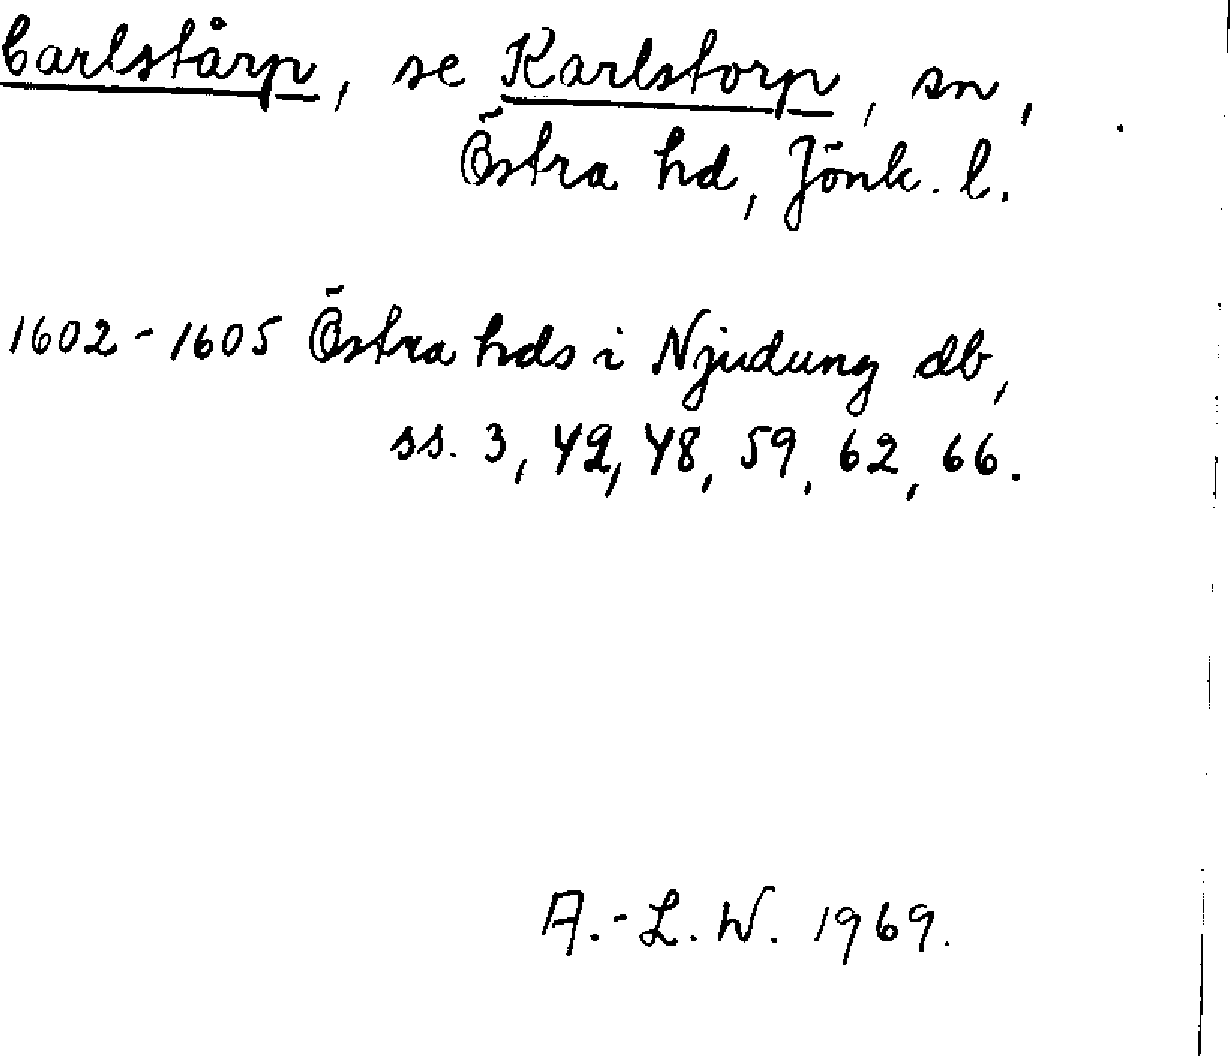 Carlstårp, se Karlstorp, sn,
Östra hd, Jönk. l.
1602-1605 Östra hds i Njudung db,
ss. 3, 42, 48, 59, 62, 66.
A.-L. W. 1969.